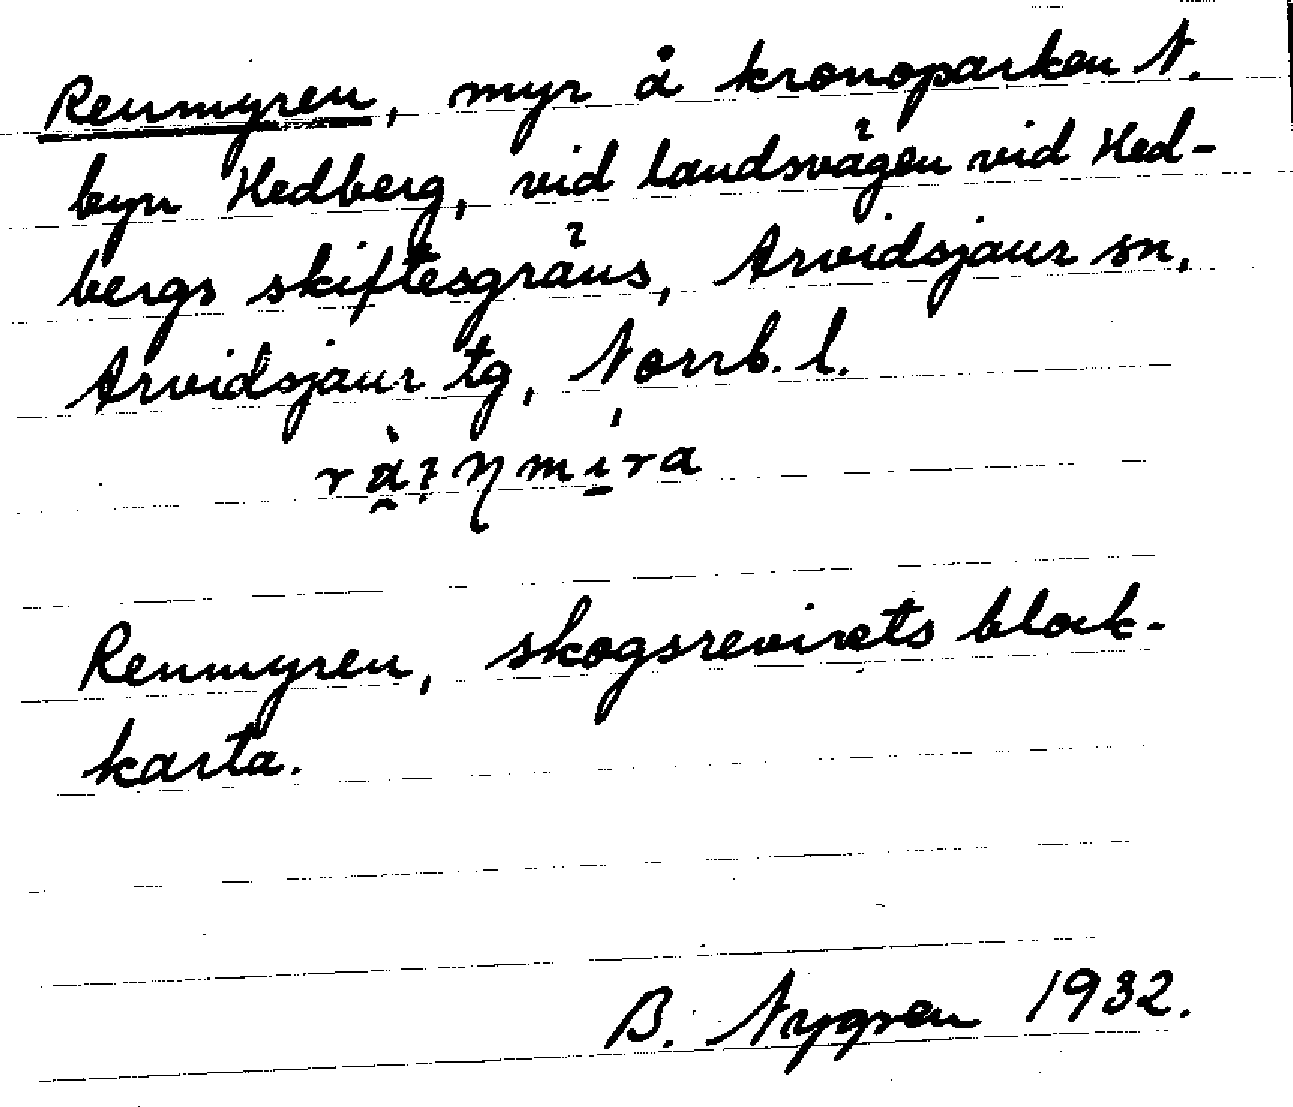 Renmyren, myr å kronoparken N.
byn Hedberg, vid landsvägen vid Hed-
bergs skiftesgräns, Arvidsjaur sn,
Arvidsjaur tg, Norrb. l.
Renmyren, skogsrevirets block-
karta.
B. Nygren 1932.